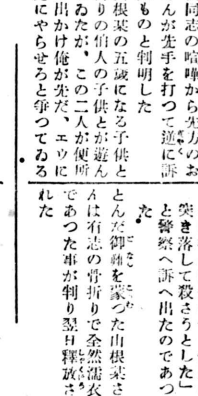 同志の喧嘩から先方のお
んが先手を打つて逆に訴
ものと判明した
根某の五歳になる子供と
りの伯人の子供とが遊ん
ゐたが、この二人が便所
出かけ俺が先だ、エウに
にやらせろと爭つてゐる
突き落して殺さうとした」
と警察へ訴へ出たのであつ
た
とんだ御難を蒙つた山根某さ
んは有志の骨折りで全然濡衣
であつた事が判り翌日釋放さ
れた